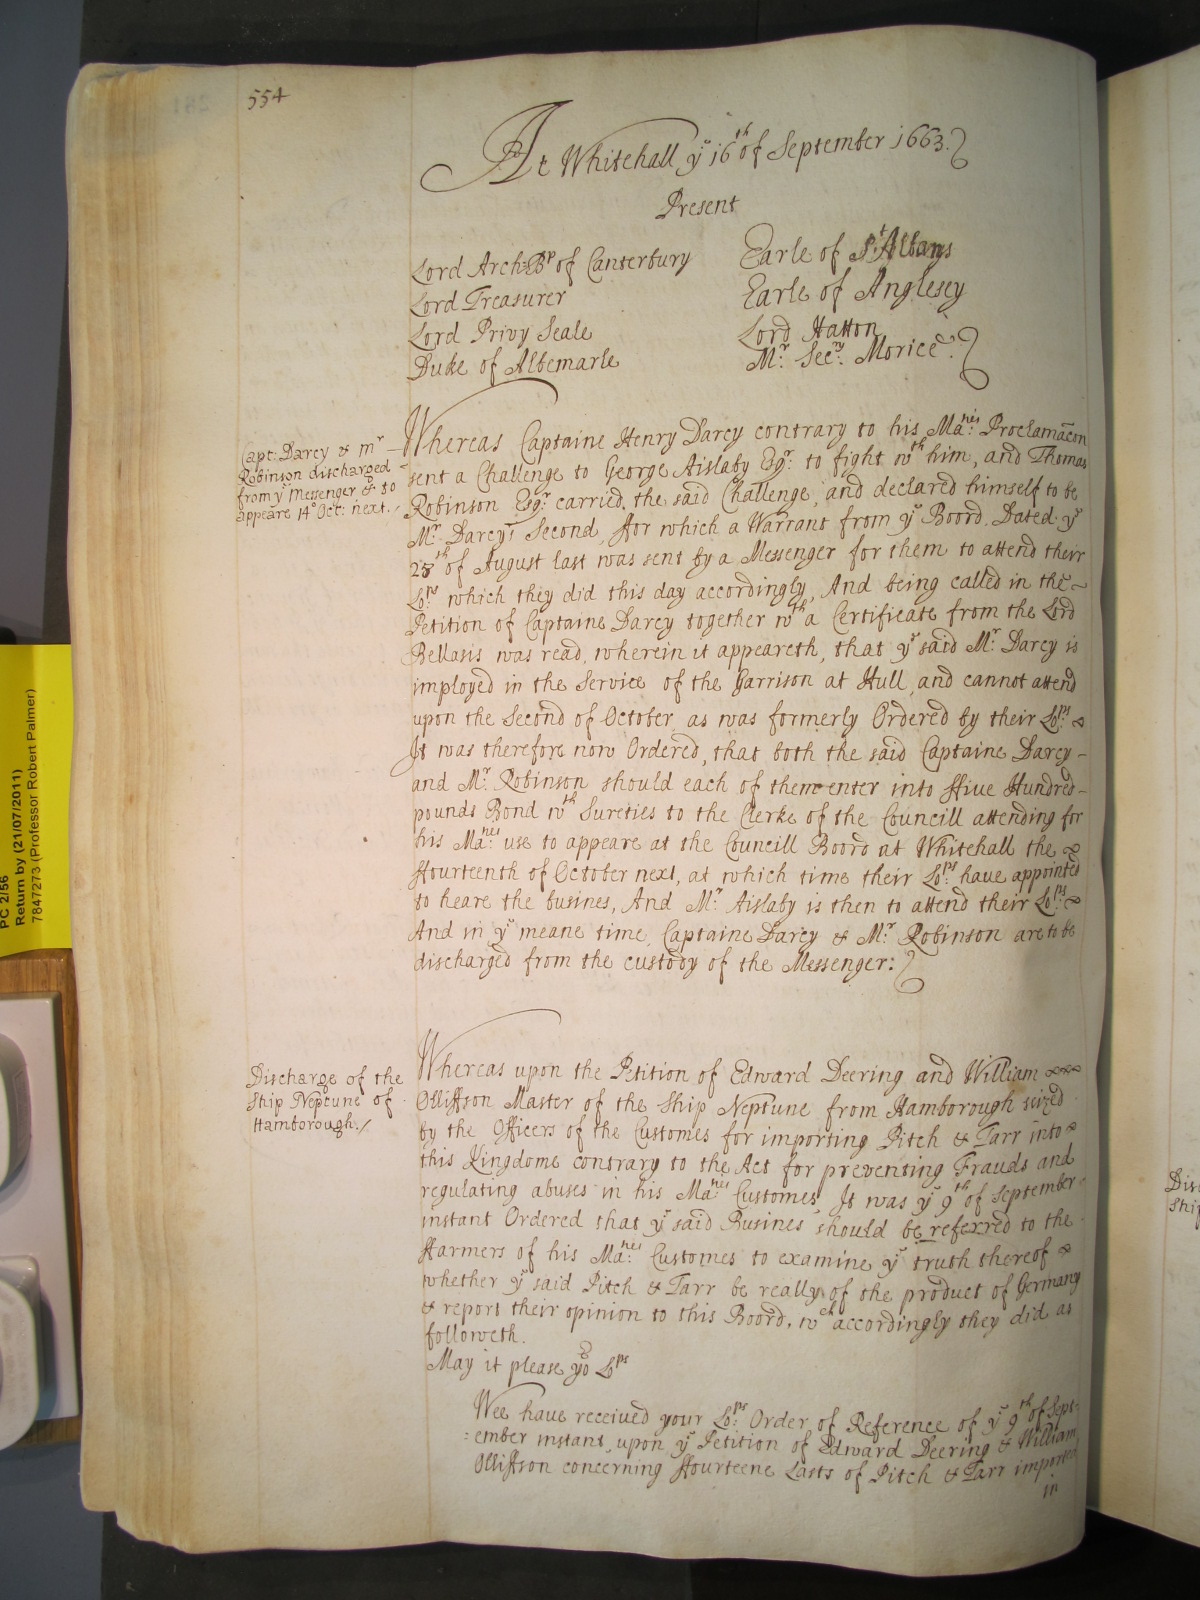 554
At Whitehall yͤ 16th of September 1663.
Present
Lord Arch:Bp of Canterbury
Lord Treasurer
Lord Privy Seale
Duke of Albemarle
Earle of St Albans
Earle of Anglesey
Lord Hatton
Mr. Secry. Morice.
Capt: Darcy & mr
Robinson discharged
from yͤ Messenger & to
appeare 14º Oct: next./
Whereas Captaine Henry Darcy contrary to his Maties Proclamac̄on
sent a Challenge to George Aislaby Esqr. to fight wth him, and Thomas
Robinson Esqr. carried the said Challenge, and declared himself to be
Mr. Darcys Second, ffor which a Warrant from yͤ Board Dated yͤ
28th of August last was sent by a Messenger for them to attend their
Lops. which they did this day accordingly, And being called in the
Petition of Captaine Darcy together wth a Certificate from the Lord
Bellasis was read, wherein it appeareth, that yͤ said Mr. Darcy is
imployed in the Service of the Garrison at Hull, and cannot attend
upon the Second of October, as was formerly Ordered by their Lops.
It was therefore now Ordered, that both the said Captaine Darcy
and Mr. Robinson should each of them enter into ffive Hundred
pounds Bond wth Sureties to the Clerke of the Councill attending for
his Maties use to appeare at the Councill Board at Whitehall the
ffourteenth of October next, at which time their Lops. have appointed
to heare the busines, And Mr. Aislaby is then to attend their Lops.
And in yͤ meane time, Captaine Darcy & Mr. Robinson are to be
discharged from the custody of the Messenger:
Discharge of the
Ship Neptune of
Hamborough./
Whereas upon the Petition of Edward Deering and William
Olliffson Master of the Ship Neptune from Hamborough seized
by the Officers of the Customes for importing Pitch & Tarr into
this Kingdome contrary to the Act for preventing Frauds and
regulating abuses in his Maties Customes, It was yͤ 9th of September
instant Ordered that yͤ said Busines should be referred to the
ffarmers of his Maties Customes to examine yͤ truth thereof
whether yͤ said Pitch & Tarr be really of the product of Germany
& report their opinion to this Board, wch accordingly they did as
followeth.
May it please yor Lops
Wee have received your Lops. Order of Reference of yͤ 9th of Sept-
:ember instant, upon yͤ Petition of Edward Deering & William
Olliffson concerning ffourteene Lasts of Pitch & Tarr imported
in
PC 2/56
Return by (21/07/2011)
7847273 (Professor Robert Palmer)